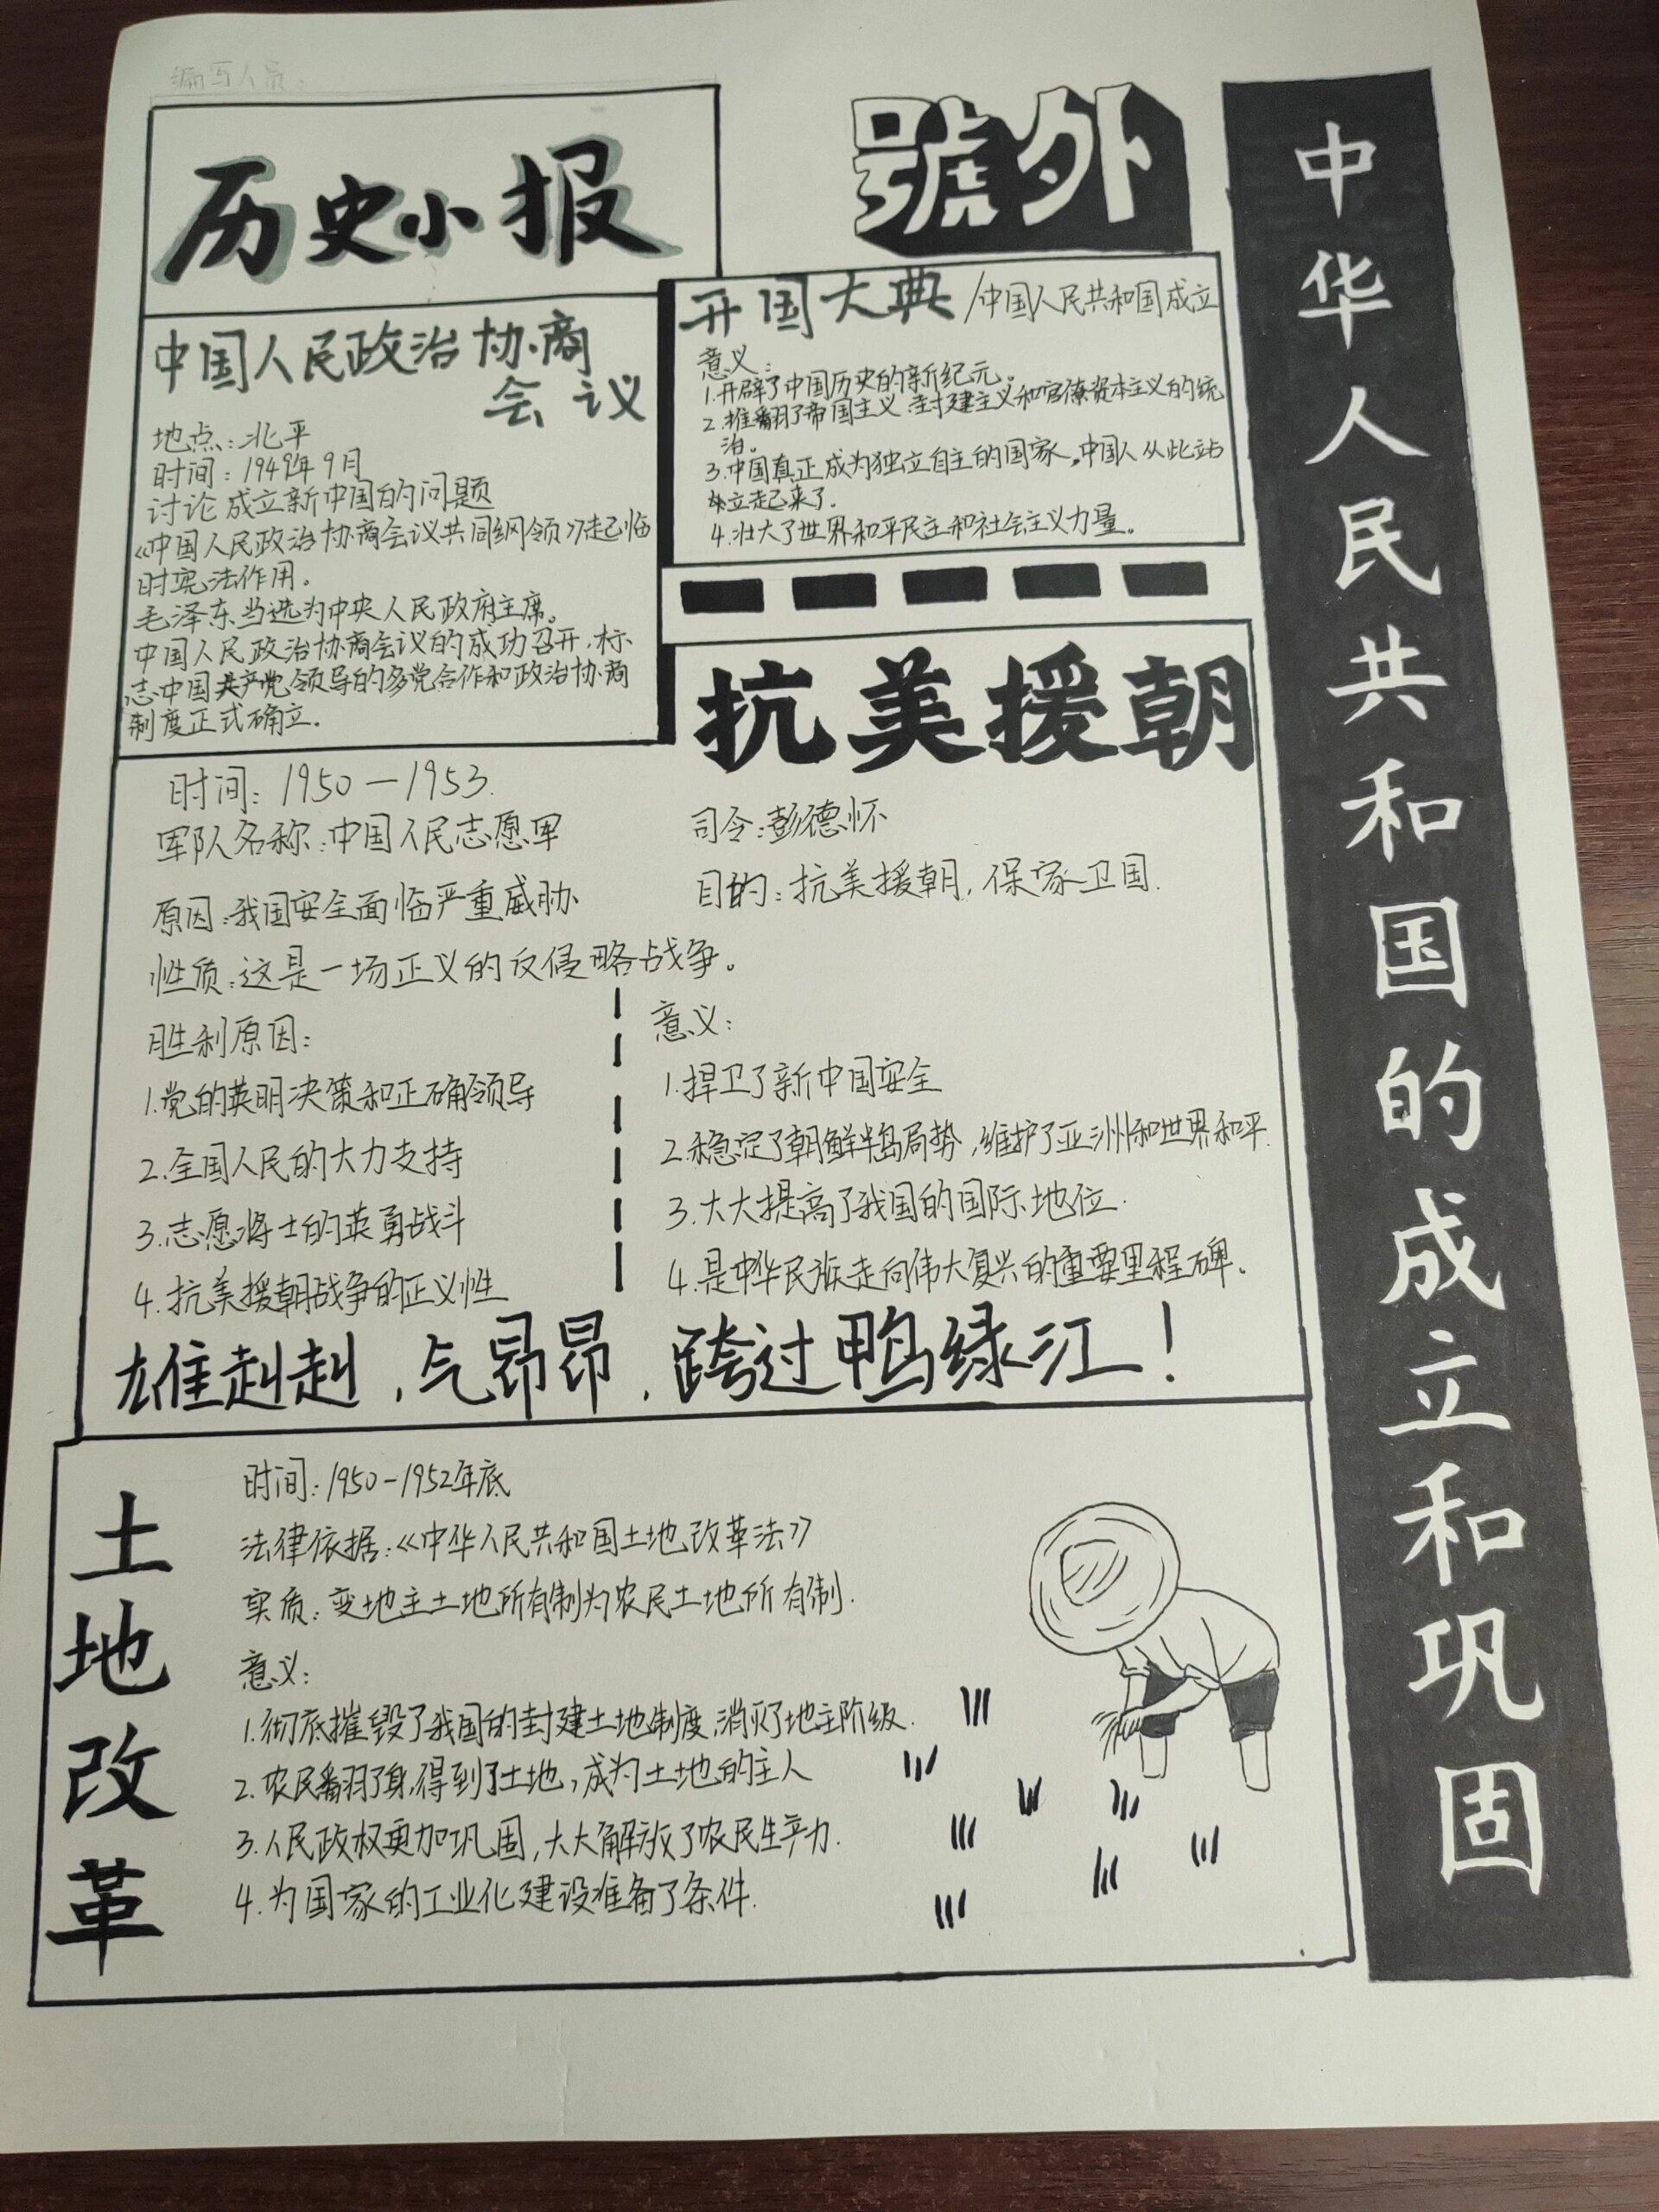 编写人员:
历史小报
號外
中国人民政治协商
会议
地点:北平
时间:1949年9月
讨论成立新中国的问题
《中国人民政治协商会议共同纲领》起临
时宪法作用。
毛泽东当选为中央人民政府主席。
中国人民政治协商会议的成功召开,标
志中国共产党领导的多党合作和政治协商
制度正式确立.
开国大典/中国人民共和国成立
意义:
1.开辟了中国历史的新纪元。
2.推翻了帝国主义.封建主义和官僚资本主义的统
治。
3.中国真正成为独立自主的国家,中国人从此站
立起来了.
4.壮大了世界和平民主和社会主义力量。
抗美援朝
时间:1950—1953.
军队名称:中国人民志愿军
司令:彭德怀
原因:我国安全面临严重威胁
目的:抗美援朝,保家卫国.
性质:这是一场正义的反侵略战争。
胜利原因:
1.党的英明决策和正确领导
2.全国人民的大力支持
3.志愿将士的英勇战斗
4.抗美援朝战争的正义性
意义:
1.捍卫了新中国安全
2.稳定了朝鲜半岛局势,维护了亚洲和世界和平.
3.大大提高了我国的国际地位.
4.是中华民族走向伟大复兴的重要里程碑。
雄赳赳,气昂昂,跨过鸭绿江!
土地改革
时间:1950-1952年底
法律依据:《中华人民共和国土地改革法》
实质:变地主土地所有制为农民土地所有制.
意义:
1.彻底摧毁了我国的封建土地制度,消灭了地主阶级.
2.农民翻了身,得到了土地,成为土地的主人
3.人民政权更加巩固,大大解放了农民生产力.
4.为国家的工业化建设准备了条件.
中华人民共和国的成立和巩固